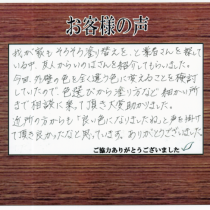 お客様の声
我が家もそろそろ塗り替えを、と業者さんを探して
いる中、友人からいのはさんを紹介してもらいました。
今回、外壁の色を全く違う色に変えることを検討
していたので、色選びから塗り方など細かい所
まで相談に乗って頂き大変助かりました。
近所の方からも「良い色になりましたね」と声を掛け
て頂き良かったなと思っています。ありがとうございました。
ご協力ありがとうございました